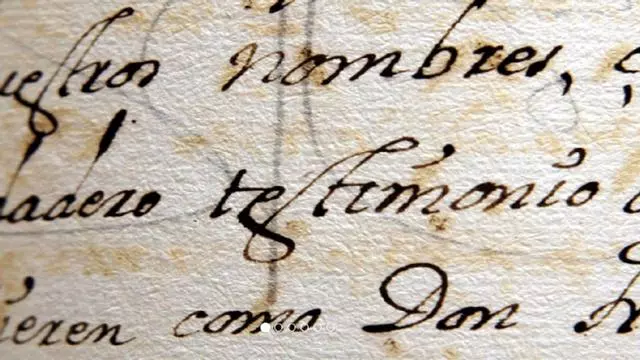 uestros nombres,
dadero testimonio
ieren como Don